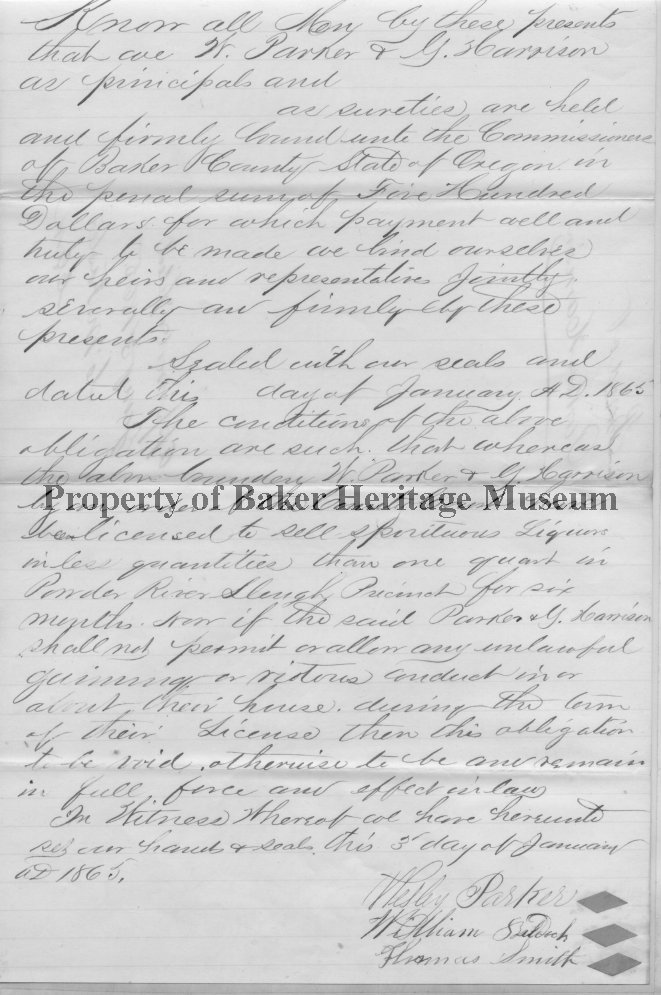 Know all Men by these presents
that we W. Parker & G. Harrison
as principals and
as sureties, are held
and firmly bound unto the Commissioners
of Baker County State of Oregon in
the penal sum of Five Hundred
Dollars for which payment well and
truly to be made we bind ourselves
our heirs and representatives Jointly
severally and firmly by these
presents.
Sealed with our seals and
dated this day of January A.D. 1865
The conditions of the above
obligation are such. that whereas
the above bounden W. Parker & G. Harrison
Property of Baker Heritage Museum
been licensed to sell Spirituous Liquors
in less quantities than one quart in
Powder River Slough Precinct for six
months. Now if the said Parker & G. Harrison
shall not permit or allow any unlawful
gaming or riotous conduct in or
about their house. during the term
of their License then this obligation
to be void, otherwise to be and remain
in full force and effect in law
In Witness Whereof we have hereunto
set our hands & seals. this 3d day of January
AD 1865.
Wesley Parker
William
Thomas Smith